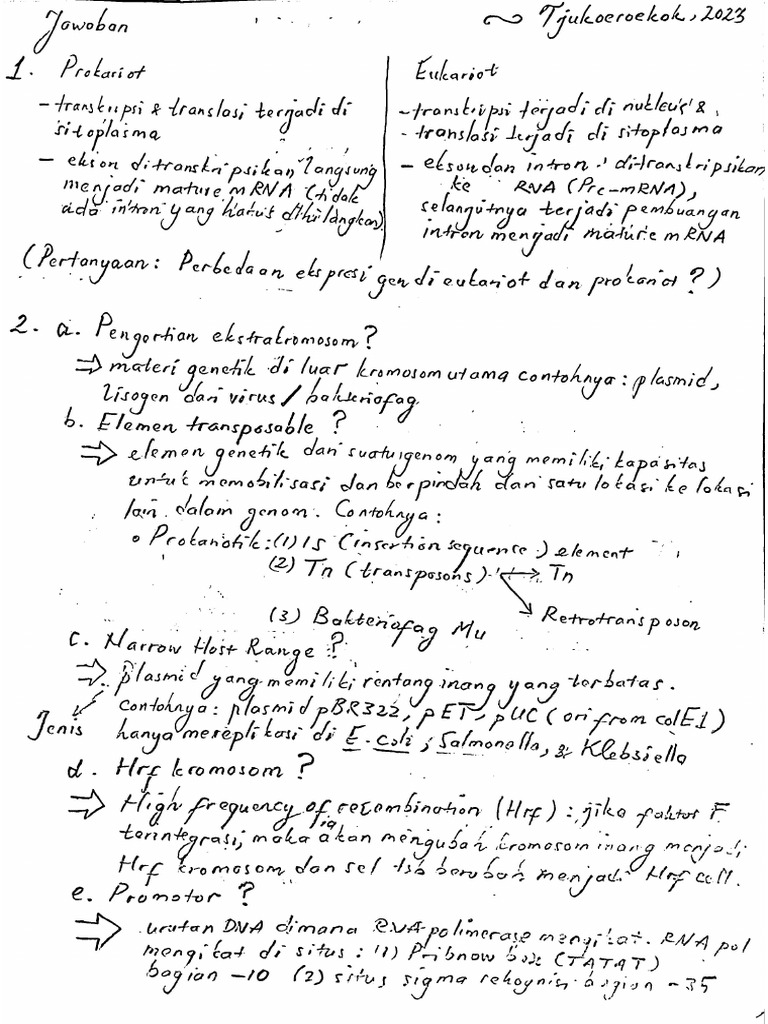 Jawaban
Tjukoeroekok, 2023
1. Prokariot
- transkripsi & translasi terjadi di
sitoplasma
- ekson ditranskripsikan langsung
menjadi mature mRNA (tidak
ada intron yang harus dihilangkan)
Eukariot
- transkripsi terjadi di nukleus &
- translasi terjadi di sitoplasma
- ekson dan intron ditranskripsikan
ke RNA (Pre-mRNA),
selanjutnya terjadi pembuangan
intron menjadi mature mRNA
(Pertanyaan: Perbedaan ekspresi gen di eukariot dan prokariot?)
2. a. Pengertian ekstrakromosom?
⇒ materi genetik di luar kromosom utama contohnya: plasmid,
lisogen dari virus/bakteriofag
b. Elemen transposable?
⇒ elemen genetik dari suatu genom yang memiliki kapasitas
untuk memobilisasi dan berpindah dari satu lokasi ke lokasi
lain dalam genom. Contohnya:
o Prokariotik: (1) IS (insertion sequence) element
(2) Tn (transposons) → Tn
Retrotransposon
(3) Bakteriofag Mu
c. Narrow Host Range?
⇒ plasmid yang memiliki rentang inang yang terbatas.
contohnya: plasmid pBR322, pET, pUC (ori from colE1)
Jenis hanya mereplikasi di E. coli, Salmonella, & Klebsiella
d. Hrf kromosom?
⇒ High frequency of recombination (Hrf): jika faktor F
terintegrasi, maka ia akan mengubah kromosom inang menjadi
Hrf kromosom dan sel tsb berubah menjadi Hrf cell.
e. Promotor?
⇒ urutan DNA dimana RNA polimerase mengikat. RNA pol
mengikat di situs: (1) Pribnow box (TATAT)
bagian -10 (2) situs sigma rekognisi bagian -35